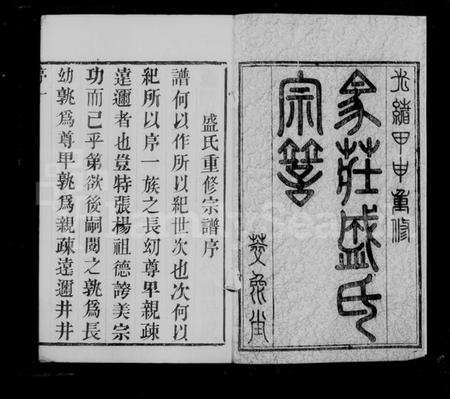 光緒甲申重修
象莊盛氏
宗譜
盛氏重修宗譜序
譜何以作所以紀世次也次何以
紀所以序一族之長幼尊卑親疎
遠邇者也豈特張楊祖德誇美宗
功而已乎第欲後嗣閱之孰爲長
幼孰爲尊卑孰爲親疎遠邇井井
序一